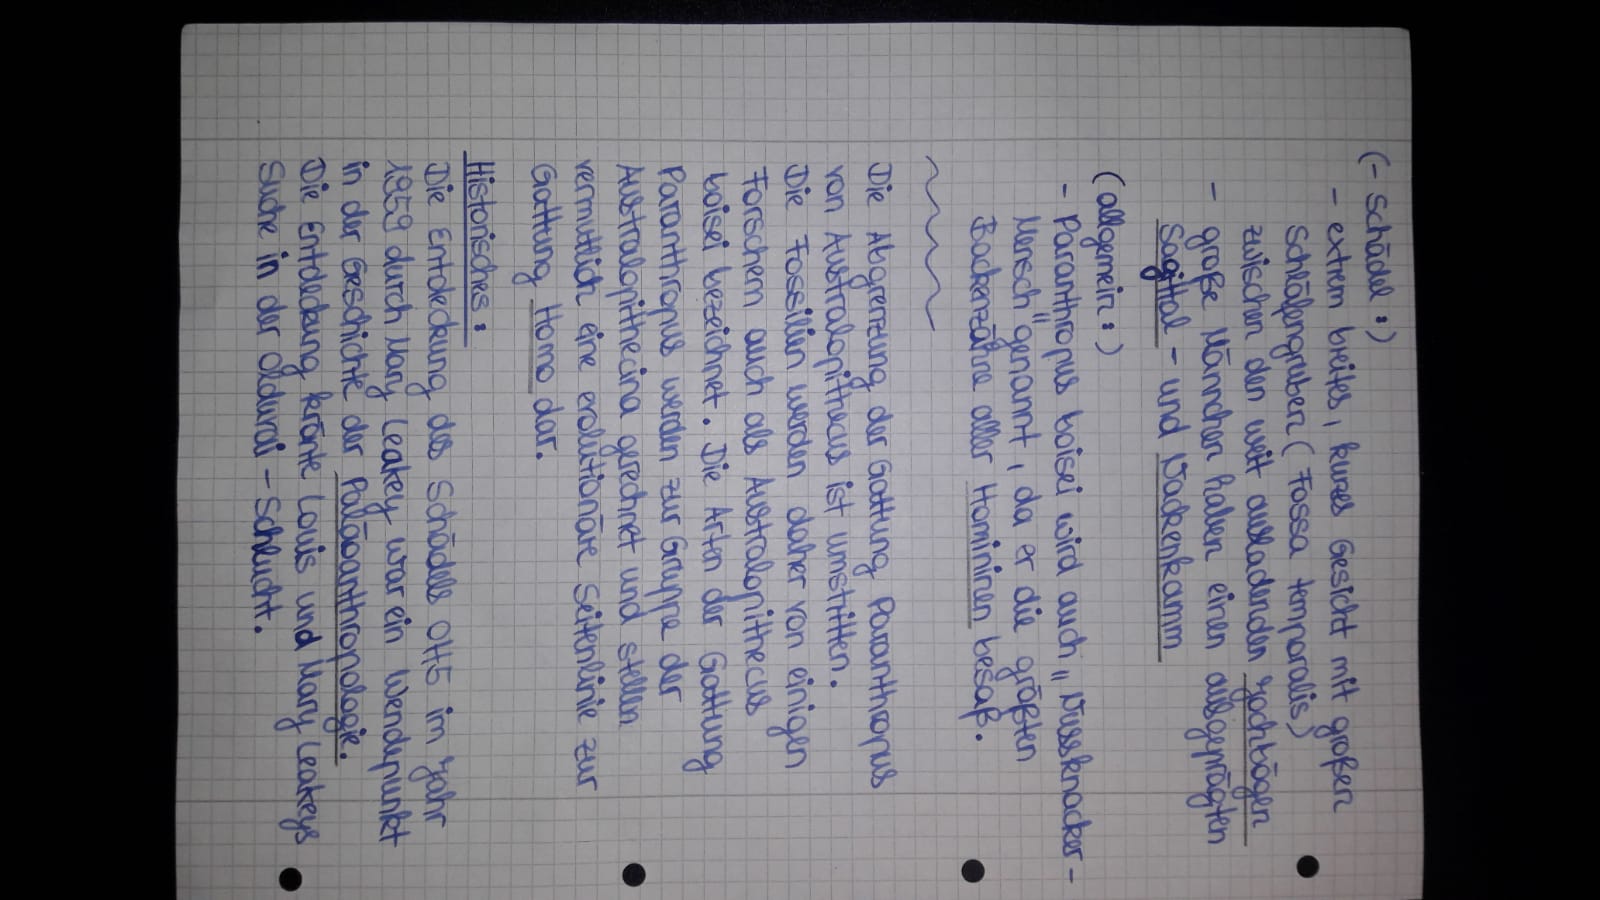 (- Schädel:)
- extrem breites, kurzes Gesicht mit großen
Schläfengruben (Fossa temporalis)
zwischen den weit ausladenden Jochbögen
- große Männchen haben einen ausgeprägten
Sagittal- und Nackenkamm
(allgemein:)
- Paranthropus boisei wird auch „Nussknacker-
Mensch" genannt, da er die größten
Backenzähne aller Homininen besaß.
Die Abgrenzung der Gattung Paranthropus
von Australopithecus ist umstritten.
Die Fossilien werden daher von einigen
Forschern auch als Australopithecus
boisei bezeichnet. Die Arten der Gattung
Paranthropus werden zur Gruppe der
Australopithecina gerechnet und stellen
vermutlich eine evolutionäre Seitenlinie zur
Gattung Homo dar.
Historisches:
Die Entdeckung des Schädels OH5 im Jahr
1959 durch Mary Leakey war ein Wendepunkt
in der Geschichte der Paläoanthropologie.
Die Entdeckung krönte Louis und Mary Leakeys
Suche in der Olduvai-Schlucht.